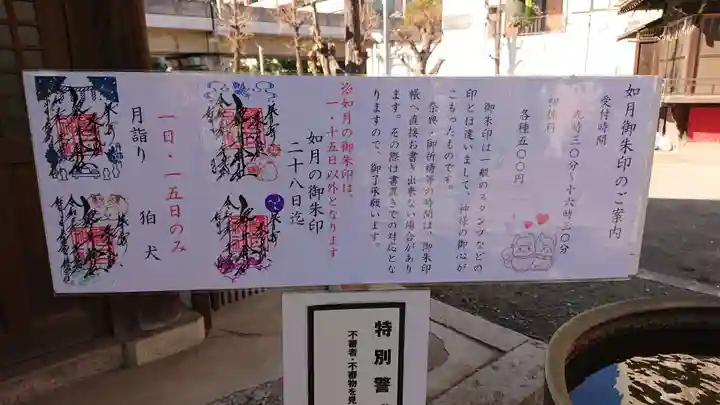 如月御朱印のご案内
受付時間
九時三〇分〜十六時三〇分
御初穂料
各種五〇〇円
御朱印は一般のスタンプなどの
印とは違いまして、神様の御心が
こもったものです。
祭典・御祈祷等の時間は、御朱印
帳へ直接お書き出来ない場合があり
ます。その際は書置きでの対応とな
りますので、御了承願います。
※如月の御朱印は、
一・十五日以外となります
如月の御朱印
二十八日迄
一日・一五日のみ
月詣り 狛犬
特別警
不審者・不審物を見